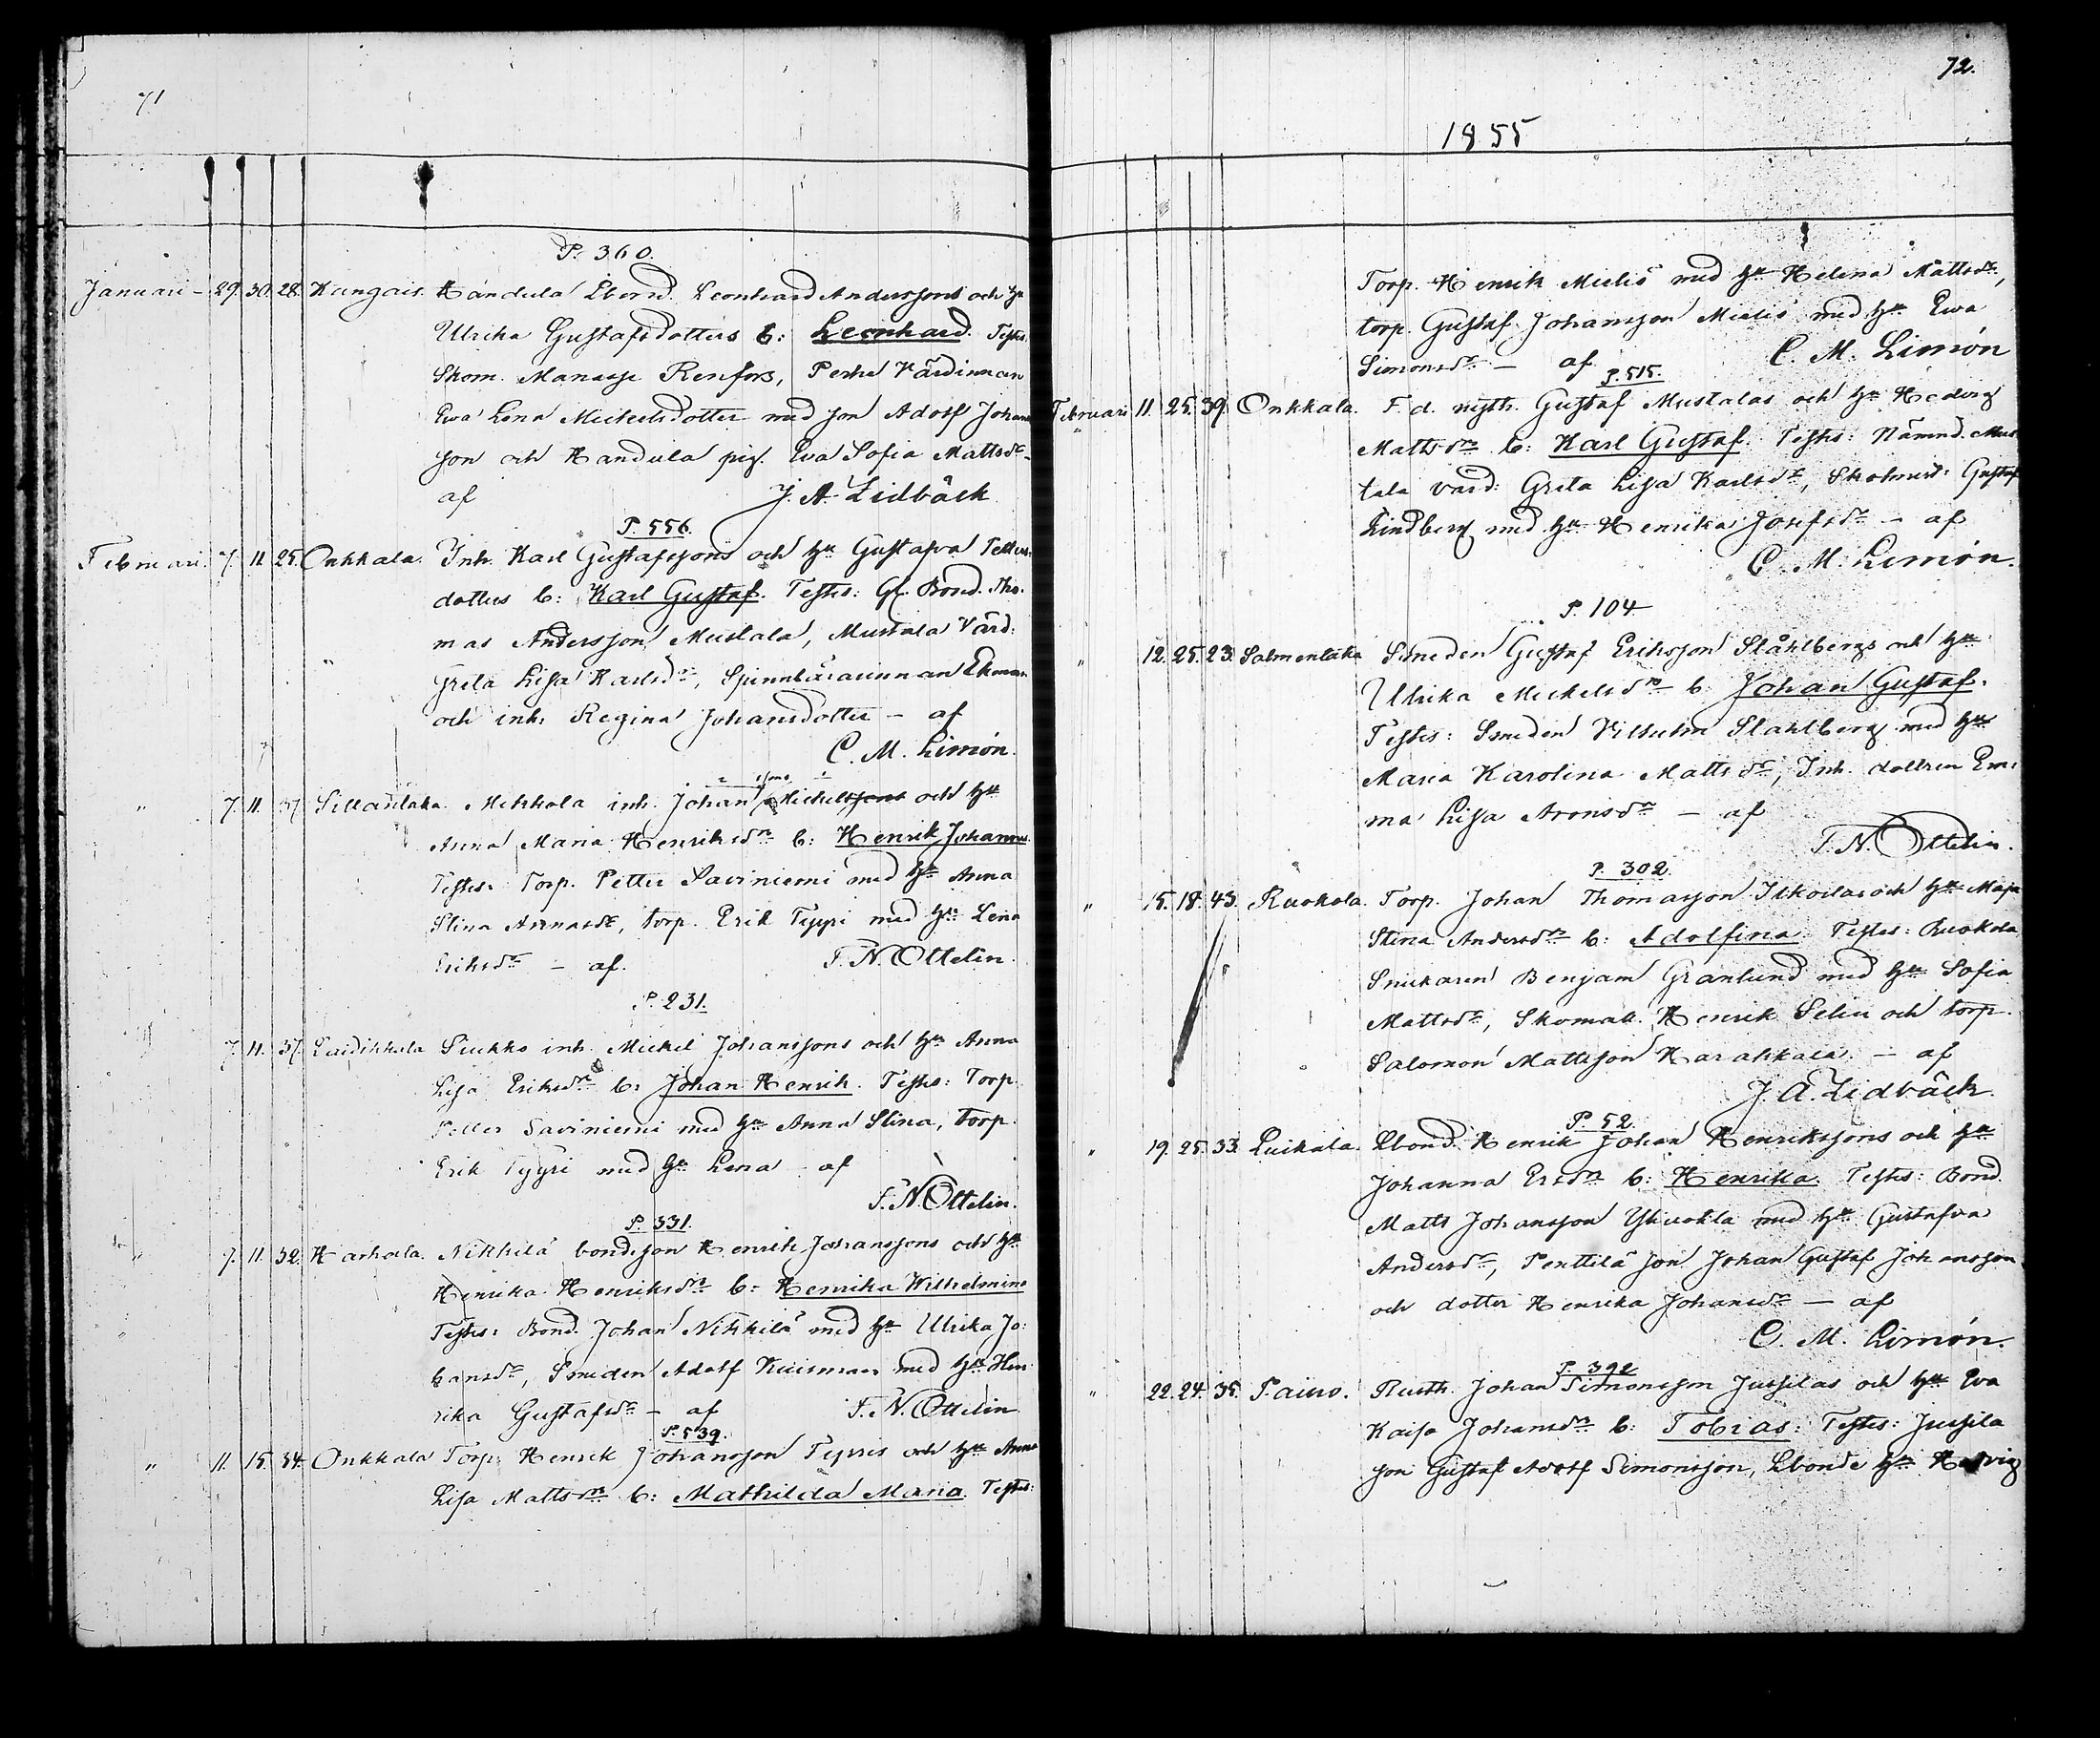 71
P. 360.
Januari - 29. 30. 28. Kangais. Handula Ebond. Leonhard Anderssons och hu
Ulrika Gustafsdotters b: Leonhard. Testes:
Skom. Manasse Renfors, Perhe Värdinnan
Ewa Lena Mickelsdotter med son Adolf Johans
son och Handula pig. Eva Sofia Mattsdr -
af J. A. Lidbäck
P. 556.
Februari. 7. 11. 25. Onkkala. Inh. Karl Gustafssons och hu Gustafva
dotters b: Karl Gustaf. Testes: Gl. Bond. Tho-
mas Andersson Mustala, Mustala Värd:
Greta Lisa Karlsdr, Spinnlärarinnan Ekman
och inh. Regina Johansdotter - af
C. M. Limón.
" 7. 11. 37. Mikkola inh. Johan Mickelssons och hu
Anna Maria Henriksdrs b: Henrik Johannes.
Testes: Torp. Petter Saviniemi med hu Anna
Stina Annasdr, torp. Erik Tyyri med hu Lena
Eriksdr - af. F. N. Ottelin.
P. 231.
7. 11. 37. Laidikkala Siukko inh. Mickel Johanssons och hu Anna
Lisa Eriksdrs b: Johan Henrik. Testes: Torp.
Petter Saviniemi med hu Anna Stina, torp.
Erik Tyyri med hu Lena - af
F. N. Ottelin.
P. 331.
" 7. 11. 32. Nikkilä bondeson Henrik Johanssons och hu
Henrika Henriksdrs b: Henrika Wilhelmina
Testes: Bond. Johan Nikkilä med hu Ulrika Jo-
hansdr, Smeden Adolf Kuisman med hu Hen-
rika Gustafsdr - af F. N. Ottelin
P. 539.
" 11. 15. 34. Onkkala Torp. Henrik Johansson Tyris och hu Anna
Lisa Mattsdrs b: Mathilda Maria. Testes:
72.
1855
Torp. Henrik Mielis med hu Helena Mattsdr,
torp. Gustaf Johansson Mielis med hu Ewa
Simonsdr - af C. M. Limón
P. 515.
Februari 11. 25. 39. Onkkala. F. d. rusth. Gustaf Mustalas och hu Hedvig
Mattsdrs b: Karl Gustaf. Testes: Nämnd. Mus-
tala värd: Greta Lisa Karlsdr, Skolmäst: Gustaf
Lindberg med hu Henrika Josefsdr - af
C. M. Limón.
P. 104.
" 12. 25. 23. Salmentaka Smeden Gustaf Eriksson Ståhlbergs och hu
Ulrika Mickelsdrs b. Johan Gustaf.
Testes: Smeden Vilhelm Ståhlberg med hu
Maria Karolina Mattsdr, Inh. dottren Em-
ma Lisa Aronsdr - af
F. N. Ottelin.
P. 302.
" 15. 18. 43. Ruokola. Torp. Johan Thomasson Iskolas och hu Maja
Stina Andersdrs b: Adolfina. Testes: Ruokola
Snickaren Benjam Granlund med hu Sofia
Mattsdr, Skomak. Henrik Selin och torp.
Salomon Mattsson Harakkala - af
J. A. Lidbäck.
P. 52.
" 19. 25. 33. Luikala. Ebond. Henrik Johan Henrikssons och hu
Johanna Ersdrs b: Henrika. Testes: Bond.
Matts Johansson Yliuokla med hu Gustafva
Andersdr, Penttilä son Johan Gustaf Johansson
och dotter Henrika Johansdr - af
C. M. Limón.
P. 392
" 22. 24. 35. Paino. Rusth. Johan Simonsson Jussilas och hu Eva
Kaisa Johansdrs b: Tobias: Testes: Jussila
son Gustaf Adolf Simonsson, Ebonde hu Hedvig